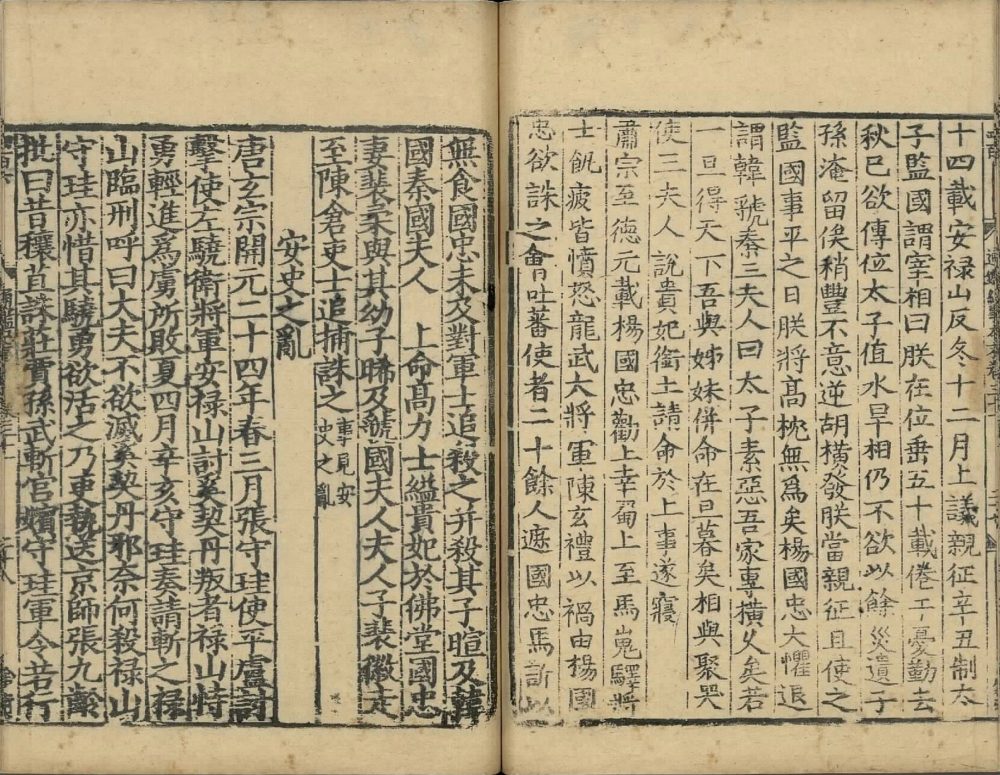 十四載安祿山反冬十二月上議親征辛丑制太
子監國謂宰相曰朕在位垂五十載倦于憂勤去
秋已欲傳位太子值水旱相仍不欲以餘災遺子
孫淹留俟稍豐不意逆胡橫發朕當親征且使之
監國事平之日朕將高枕無爲矣楊國忠大懼退
謂韓虢秦三夫人曰太子素惡吾家專橫久矣若
一旦得天下吾與姊妹併命在旦暮矣相與聚哭
使三夫人說貴妃銜土請命於上事遂寢
肅宗至德元載楊國忠勸上幸蜀上至馬嵬驛將
士飢疲皆憤怒龍武大將軍陳玄禮以禍由楊國
忠欲誅之會吐蕃使者二十餘人遮國忠馬訴以
無食國忠未及對軍士追殺之并殺其子暄及韓
國秦國夫人 上命高力士縊貴妃於佛堂國忠
妻裴柔與其幼子晞及虢國夫人夫人子裴徽走
至陳倉吏士追捕誅之事見安史之亂
安史之亂
唐玄宗開元二十四年春三月張守珪使平盧討
擊使左驍衛將軍安祿山討奚契丹叛者祿山恃
勇輕進爲虜所敗夏四月辛亥守珪奏請斬之祿
山臨刑呼曰大夫不欲滅奚契丹邪奈何殺祿山
守珪亦惜其驍勇欲活之乃更執送京師張九齡
批曰昔穰苴誅莊賈孫武斬宮嬪守珪軍令若行